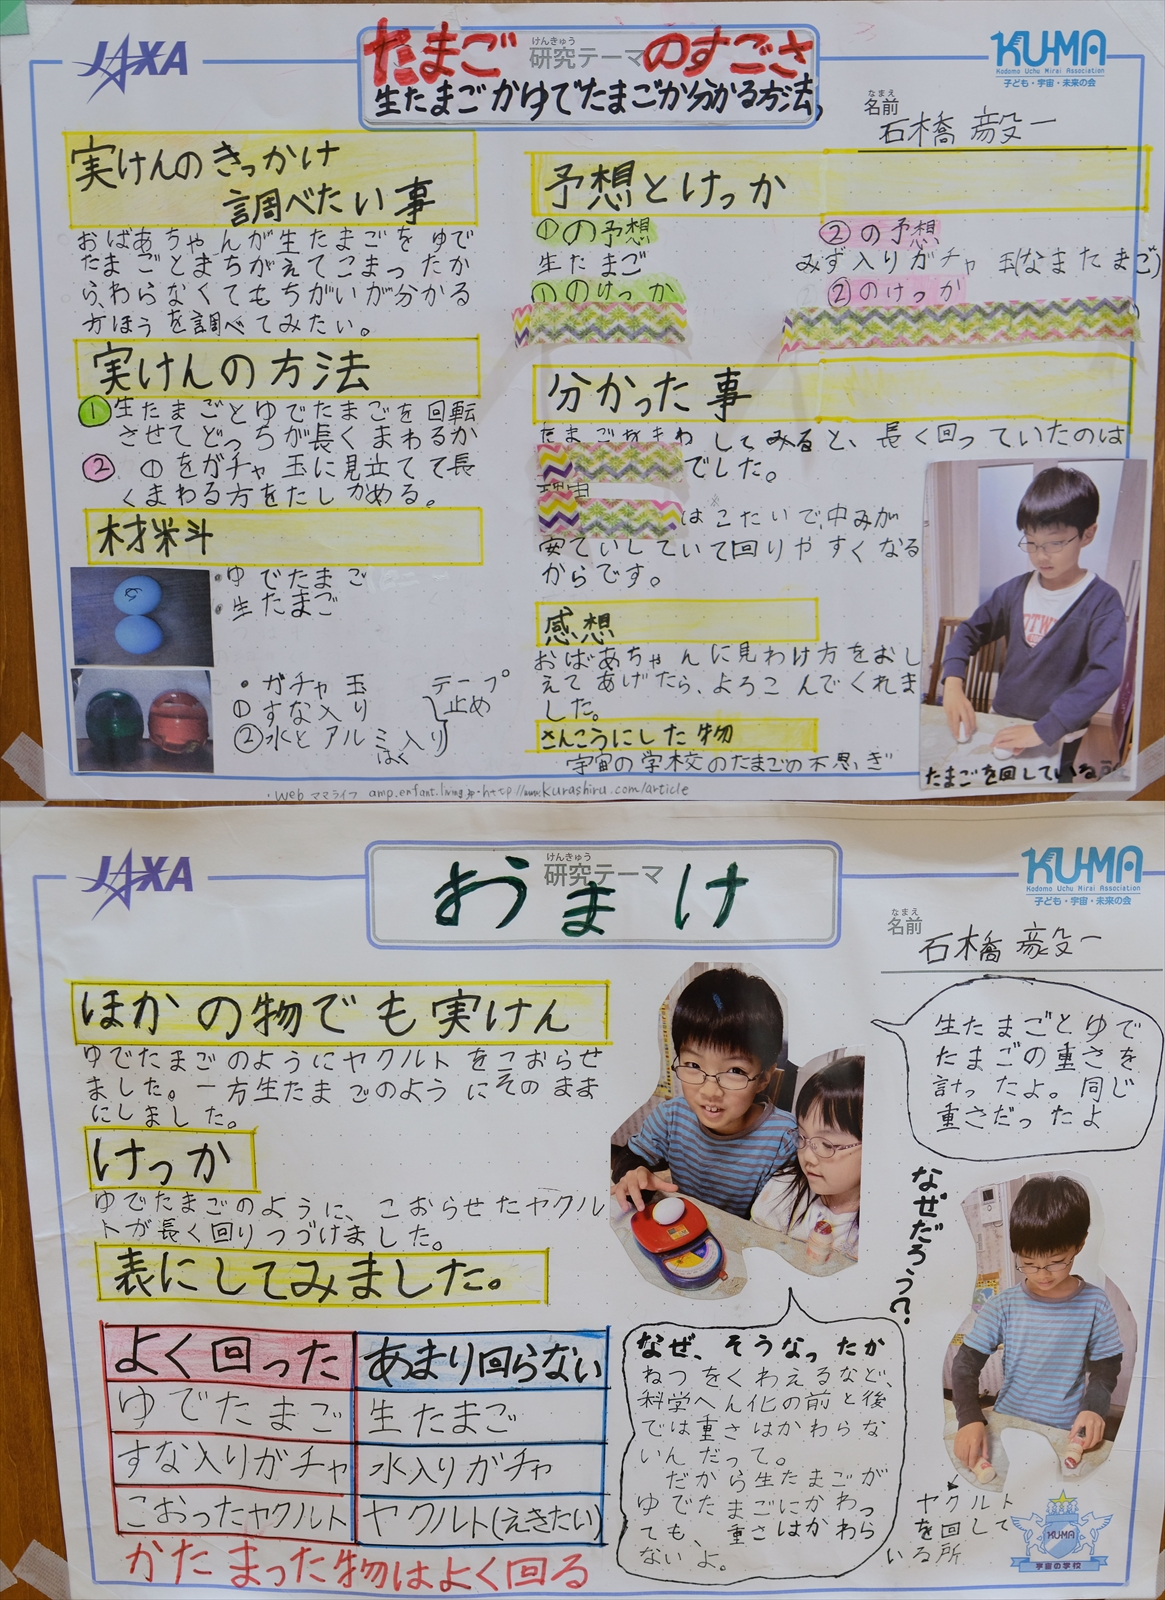 JAXA
たまごのすごさ
けんきゅう
研究テーマ
生たまごかゆでたまごか分かる方法
KU-MA
Kodomo Uchu Mirai Association
子ども・宇宙・未来の会
なまえ
名前
石橋 毅一
実けんのきっかけ
調べたい事
おばあちゃんが生たまごをゆで
たまごとまちがえてこまったか
ら、わらなくてもちがいが分かる
方ほうを調べてみたい。
実けんの方法
①生たまごとゆでたまごを回転
させてどっちが長くまわるか
② ①をガチャ玉に見立てて長
くまわる方をたしかめる。
材料
・ゆでたまご
・生たまご
・ガチャ玉
①すな入り
②水とアルミはく入り
テープ止め
予想とけっか
①の予想
生たまご
①のけっか
②の予想
みず入りガチャ玉(なまたまご)
②のけっか
分かった事
たまごをまわしてみると、長く回っていたのは
でした。
はこたいで、中みが
安ていしていて回りやすくなる
からです。
感想
おばあちゃんに見わけ方をおし
えてあげたら、よろこんでくれま
した。
さんこうにした物
宇宙の学校のたまごの不思ぎ
・Web ママライフ amp.enfant.living.jp・http://www.kurashiru.com/article
たまごを回している所
JAXA
けんきゅう
研究テーマ
おうまけ
KU-MA
Kodomo Uchu Mirai Association
子ども・宇宙・未来の会
なまえ
名前
石橋 毅一
ほかの物でも実けん
ゆでたまごのようにヤクルトをこおらせ
ました。一方生たまごのようにそのまま
にしました。
けっか
ゆでたまごのように、こおらせたヤクル
トが長く回りつづけました。
表にしてみました。
よく回った あまり回らない
ゆでたまご 生たまご
すな入りガチャ 水入りガチャ
こおったヤクルト ヤクルト(えきたい)
かたまった物はよく回る
生たまごとゆで
たまごの重さを
計ったよ。同じ
重さだったよ
なぜだろう?
なぜ、そうなったか
ねつをくわえるなど、
科学へん化の前と後
では重さはかわらな
いんだって。
だから生たまごが
ゆでたまごにかわっ
ても、重さはかわら
ないよ。
ヤクルト
を回して
いる所
KUMA
宇宙の学校